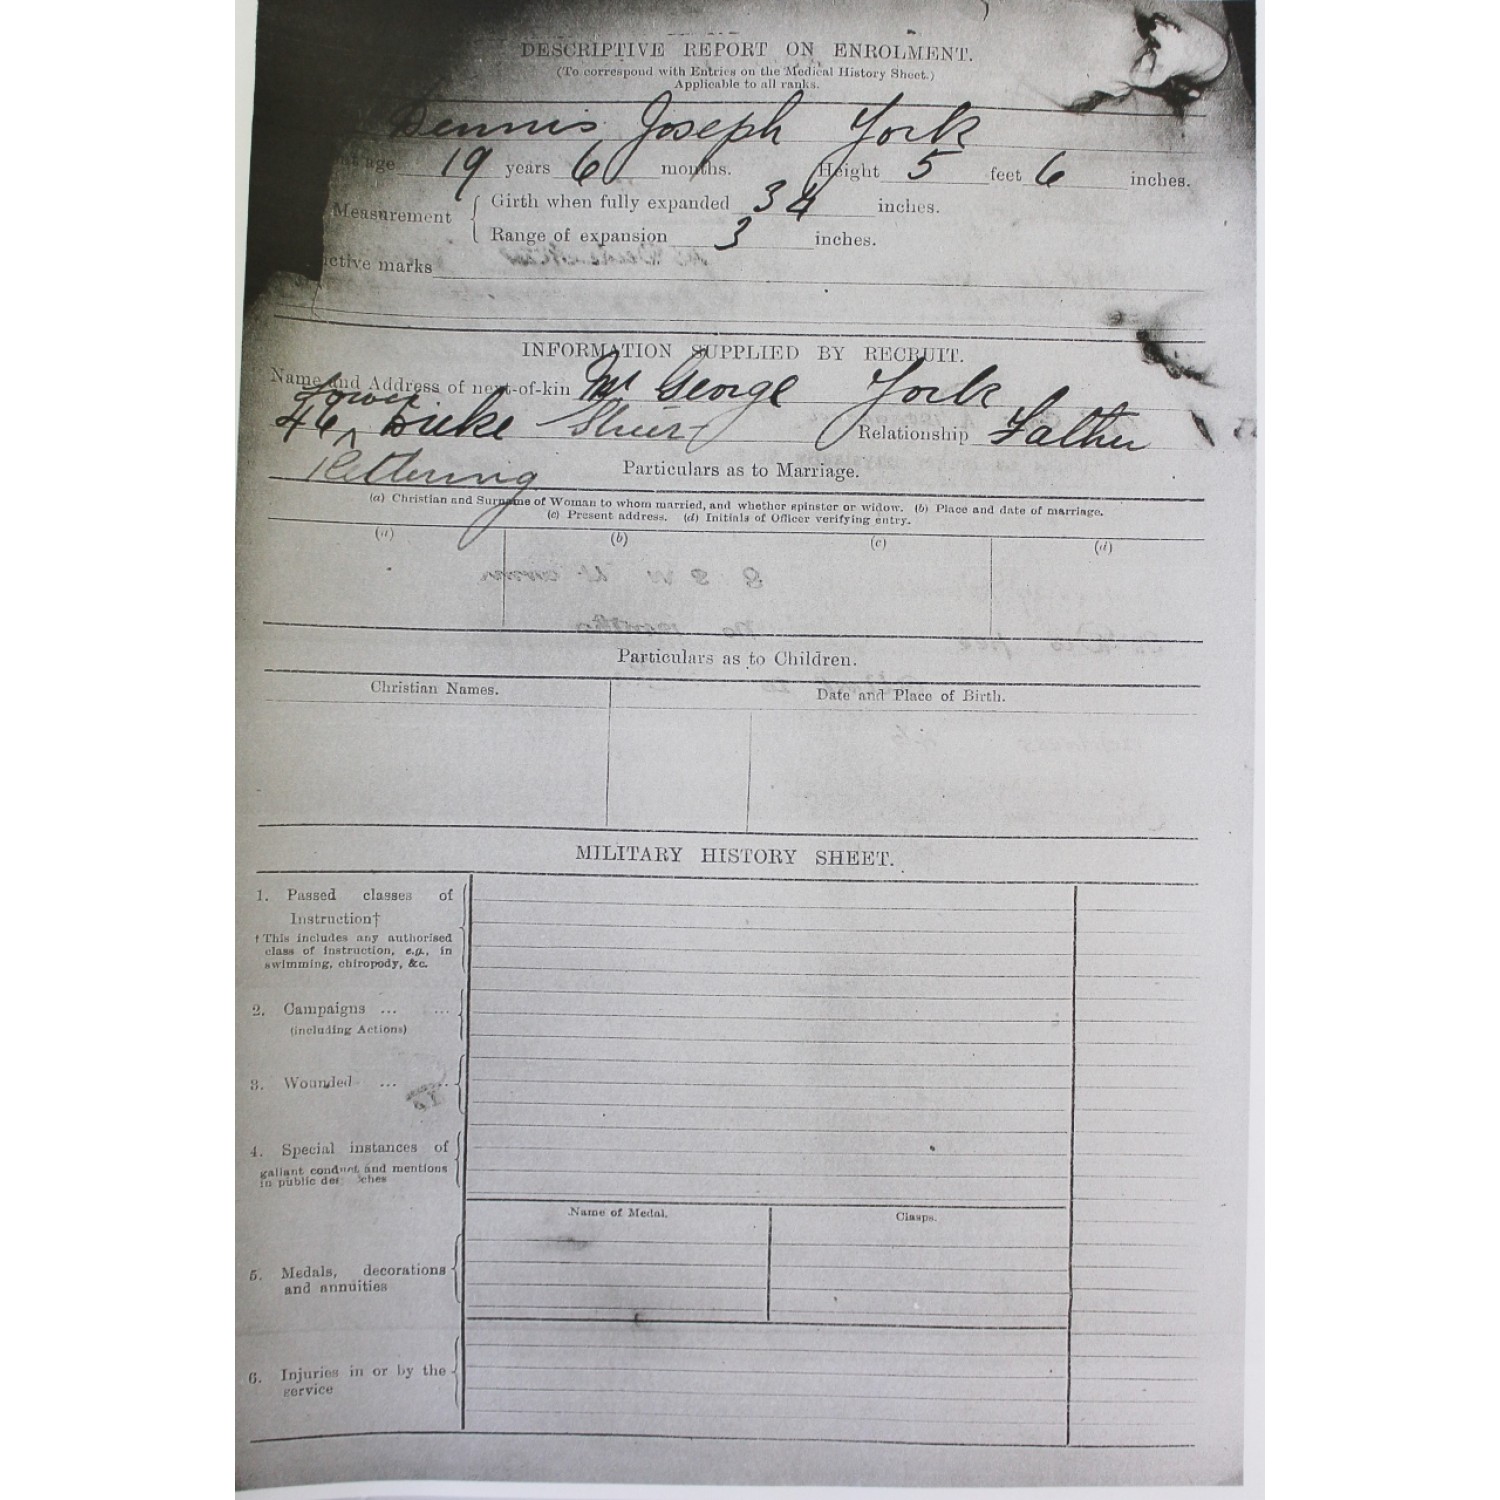 DESCRIPTIVE REPORT ON ENROLMENT.
(To correspond with Entries on the Medical History Sheet.)
Applicable to all ranks.
Dennis Joseph York
age 19 years 6 months. Height 5 feet 6 inches.
Measurement { Girth when fully expanded 34 inches.
Range of expansion 3 inches.
ctive marks
INFORMATION SUPPLIED BY RECRUIT.
Name and Address of next-of-kin Mr George York
Lower
46 ^ Street Relationship Father
Kettering
Particulars as to Marriage.
(a) Christian and Surname of Woman to whom married, and whether spinster or widow. (b) Place and date of marriage.
(c) Present address. (d) Initials of Officer verifying entry.
(a) (b) (c) (d)
Particulars as to Children.
Christian Names. Date and Place of Birth.
MILITARY HISTORY SHEET.
1. Passed classes of
Instruction†
†This includes any authorised
class of instruction, e.g., in
swimming, chiropody, &c.
2. Campaigns ... ...
(including Actions)
3. Wounded ... ...
4. Special instances of
gallant conduct and mentions
in public des ches
Name of Medal. Clasps.
5. Medals, decorations
and annuities
6. Injuries in or by the
service